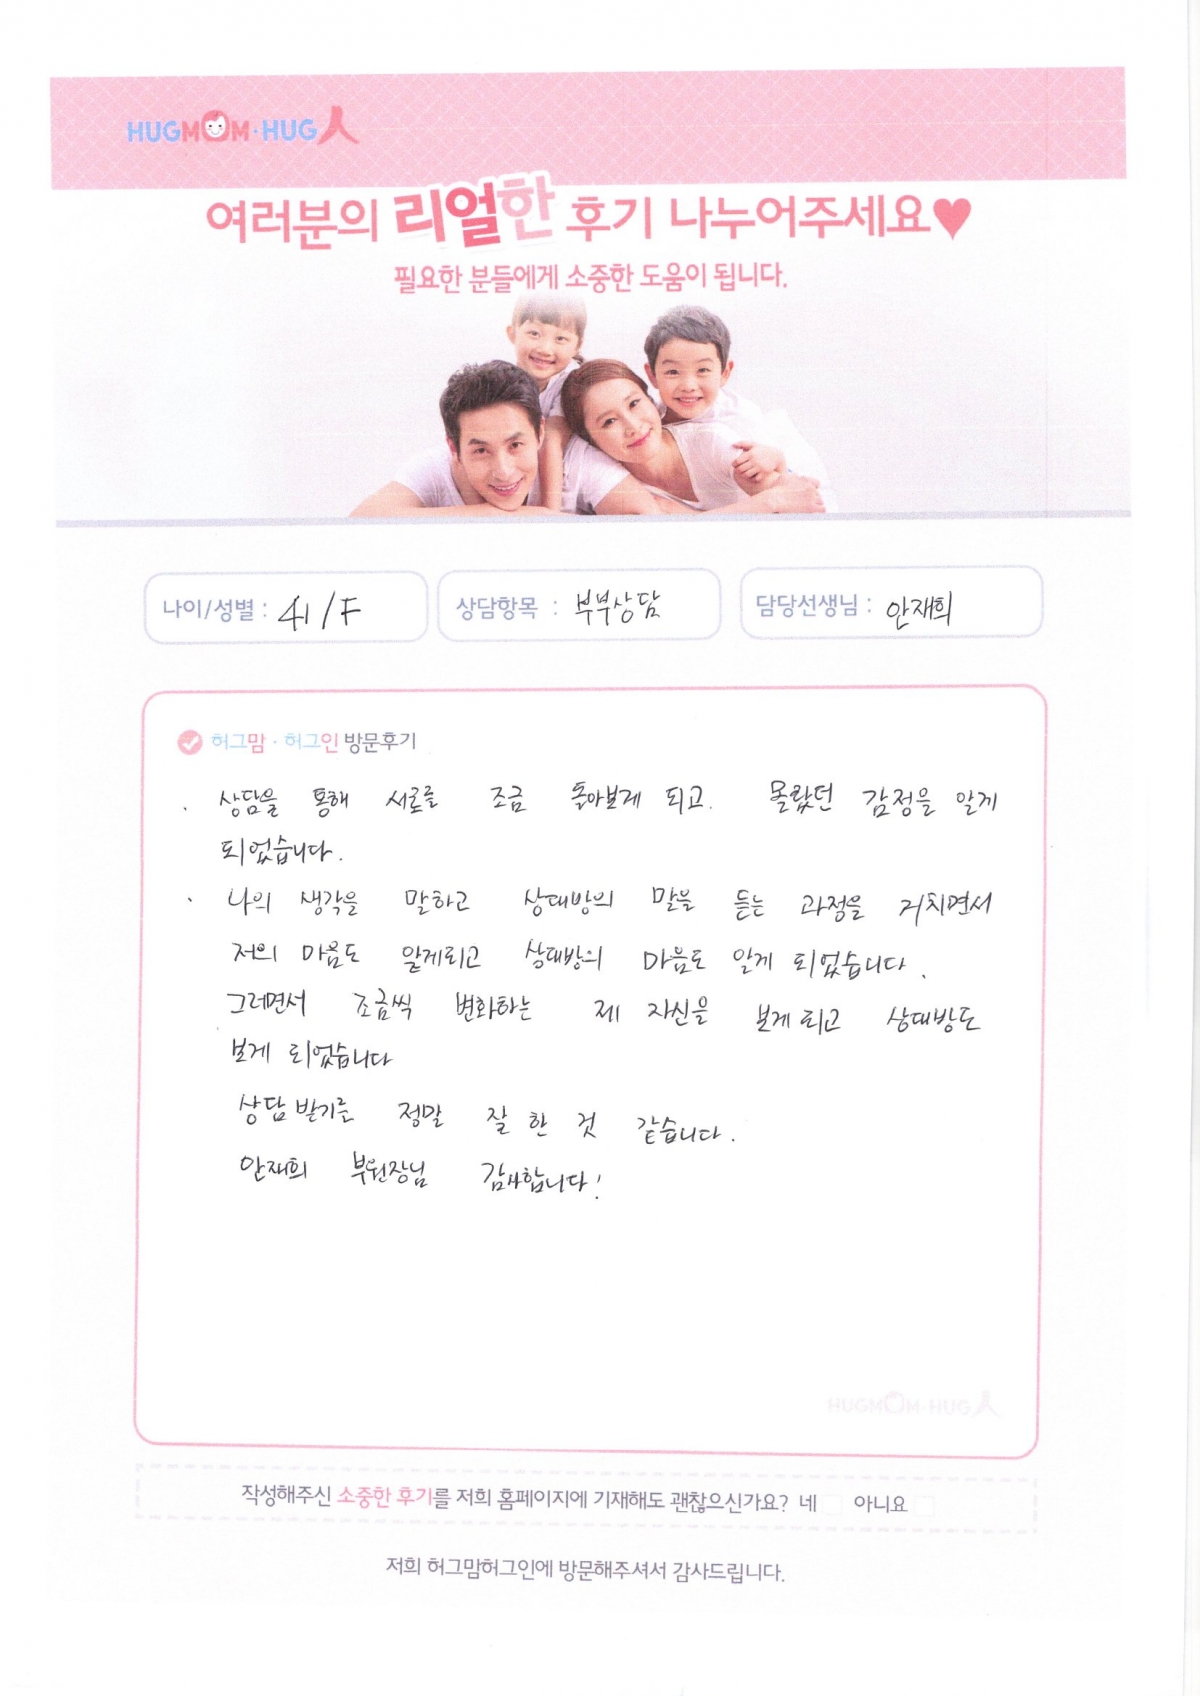 HUGMOM·HUG人
여러분의 리얼한 후기 나누어주세요♥
필요한 분들에게 소중한 도움이 됩니다.
나이/성별 : 41/F 상담항목 : 부부상담 담당선생님 : 안재희
허그맘·허그인 방문후기
. 상담을 통해 서로를 조금 돌아보게 되고. 몰랐던 감정을 알게
되었습니다.
. 나의 생각을 말하고 상대방의 말을 듣는 과정을 거치면서
저의 마음도 알게되고 상대방의 마음도 알게 되었습니다.
그러면서 조금씩 변화하는 제 자신을 보게 되고 상대방도
보게 되었습니다
상담 받기를 정말 잘 한 것 같습니다.
안재희 부원장님 감사합니다!
HUGMOM·HUG人
작성해주신 소중한 후기를 저희 홈페이지에 기재해도 괜찮으신가요? 네 아니요
저희 허그맘허그인에 방문해주셔서 감사드립니다.